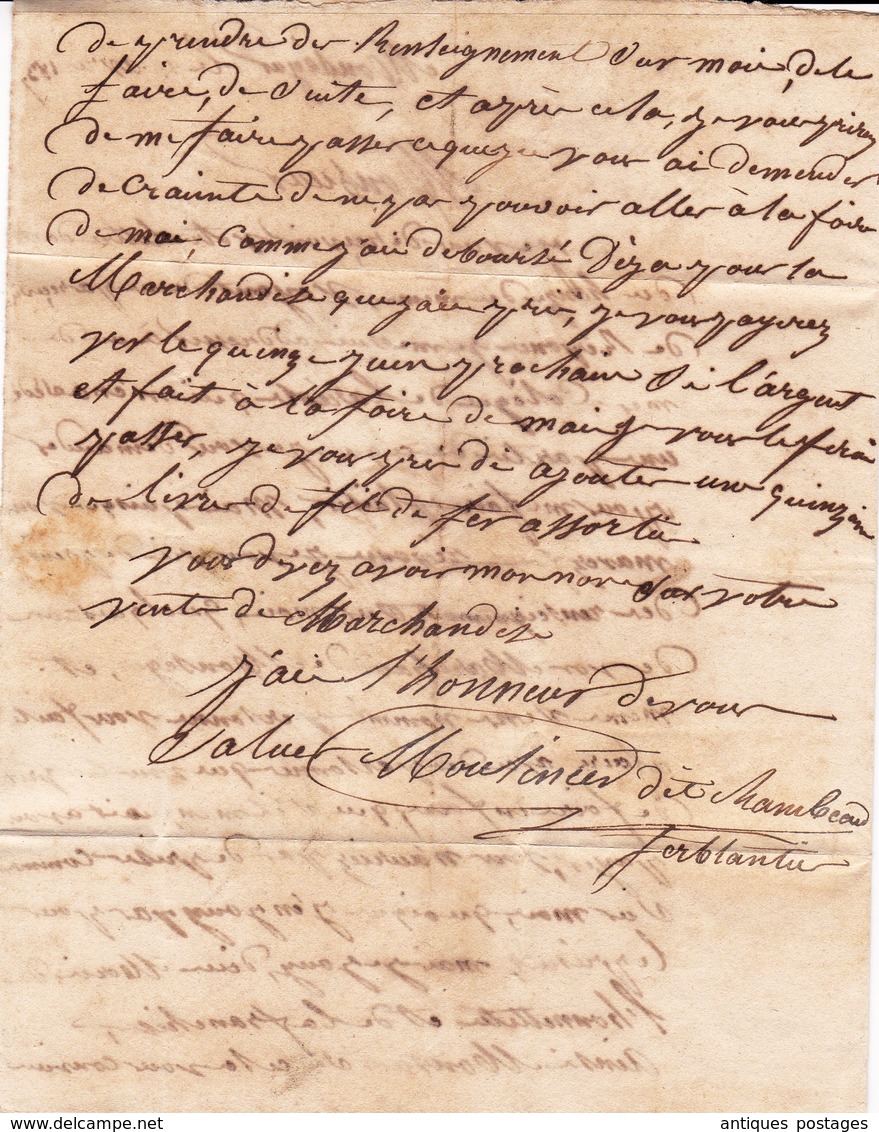 de prendre des Renseignement sur moi, de le
faire, de suite, et après cela, je vous prirez
de me faire passer ceque je vous ai demender
de crainte de ne pas pouvoir aller à la foire
de mai, comme j'ai debourté Déja pour la
Marchandise que j'ai pris, je vous payerez
ver le quinze juin prochain si l'argent
et fait à la foire de mai je vous le ferai
passer, je vous prie di ajouter une quinzaine
de livres de fil de fer assortie
vous dvez avoir mon nom sur votre
vente de Marchandise
j'ai l'honneur de vous
saluer Moulinier dit Chambeau
ferblantier
antiques postages